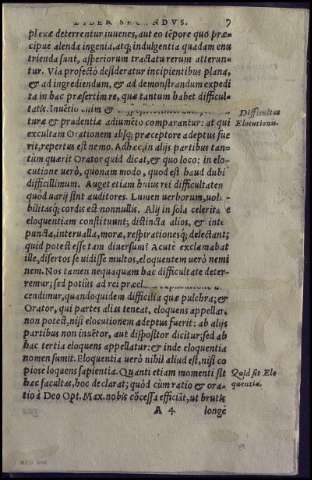 LIBER SECVNDVS. 7
plexæ deterrentur iuuenes, aut eo tēpore quo præ-
cipue alenda ingenia, atq; indulgentia quadam enu
trienda sunt, asperiorum tractatu rerum atterun-
tur. Via profectò desideratur incipientibus plana,
& ad ingrediendum, & ad demonstrandum expedi
ta in hac præsertim re, quæ tantum habet difficul-
tatis. Inuētio
turæ & prudentia adiumēto comparantur: at qui
excultam Orationem absq; præceptore adeptus fue
rit, repertus est nemo. Adhæc, in alijs partibus tan-
tùm quærit Orator quid dicat, & quo loco: in elo-
cutione uerò, quonam modo, quod est haud dubiè
difficillimum. Auget etiam huius rei difficultatem
quòd uarij sint auditores. Lumen uerborum, uolu-
bilitasq; cordis est nonnullis. Alij in sola celeritate
eloquentiam constituunt; distincta alios, & inter
puncta, interualla, moræ, respirationesq; delectant;
quid potest esse tam diuersum? Acutè exclamabat
ille, disertos se uidisse multos, eloquentem uerò nemi
nem. Nos tamen nequaquam hac difficultate deter-
remur; sed potius ad rei
cendimur, quandoquidem difficilia quæ pulchra; &
Orator, qui partes alias teneat, eloquens appellari
non potest, nisi elocutionem adeptus fuerit: ab alijs
partibus non inuētor, aut dispositor dicitur; sed ab
hac tertia eloquens appellatur: & inde eloquentia
nomen sumit. Eloquentia uerò nihil aliud est, nisi co
piosè loquens sapientia. Quanti etiam momenti sit
hæc facultas, hoc declarat; quòd cùm ratio & ora-
tio à Deo Opt. Max. nobis cōcessa efficiāt, ut brutis
A 4. longè
Difficultas
Elocutionis.
Quid sit Elo
quentia.